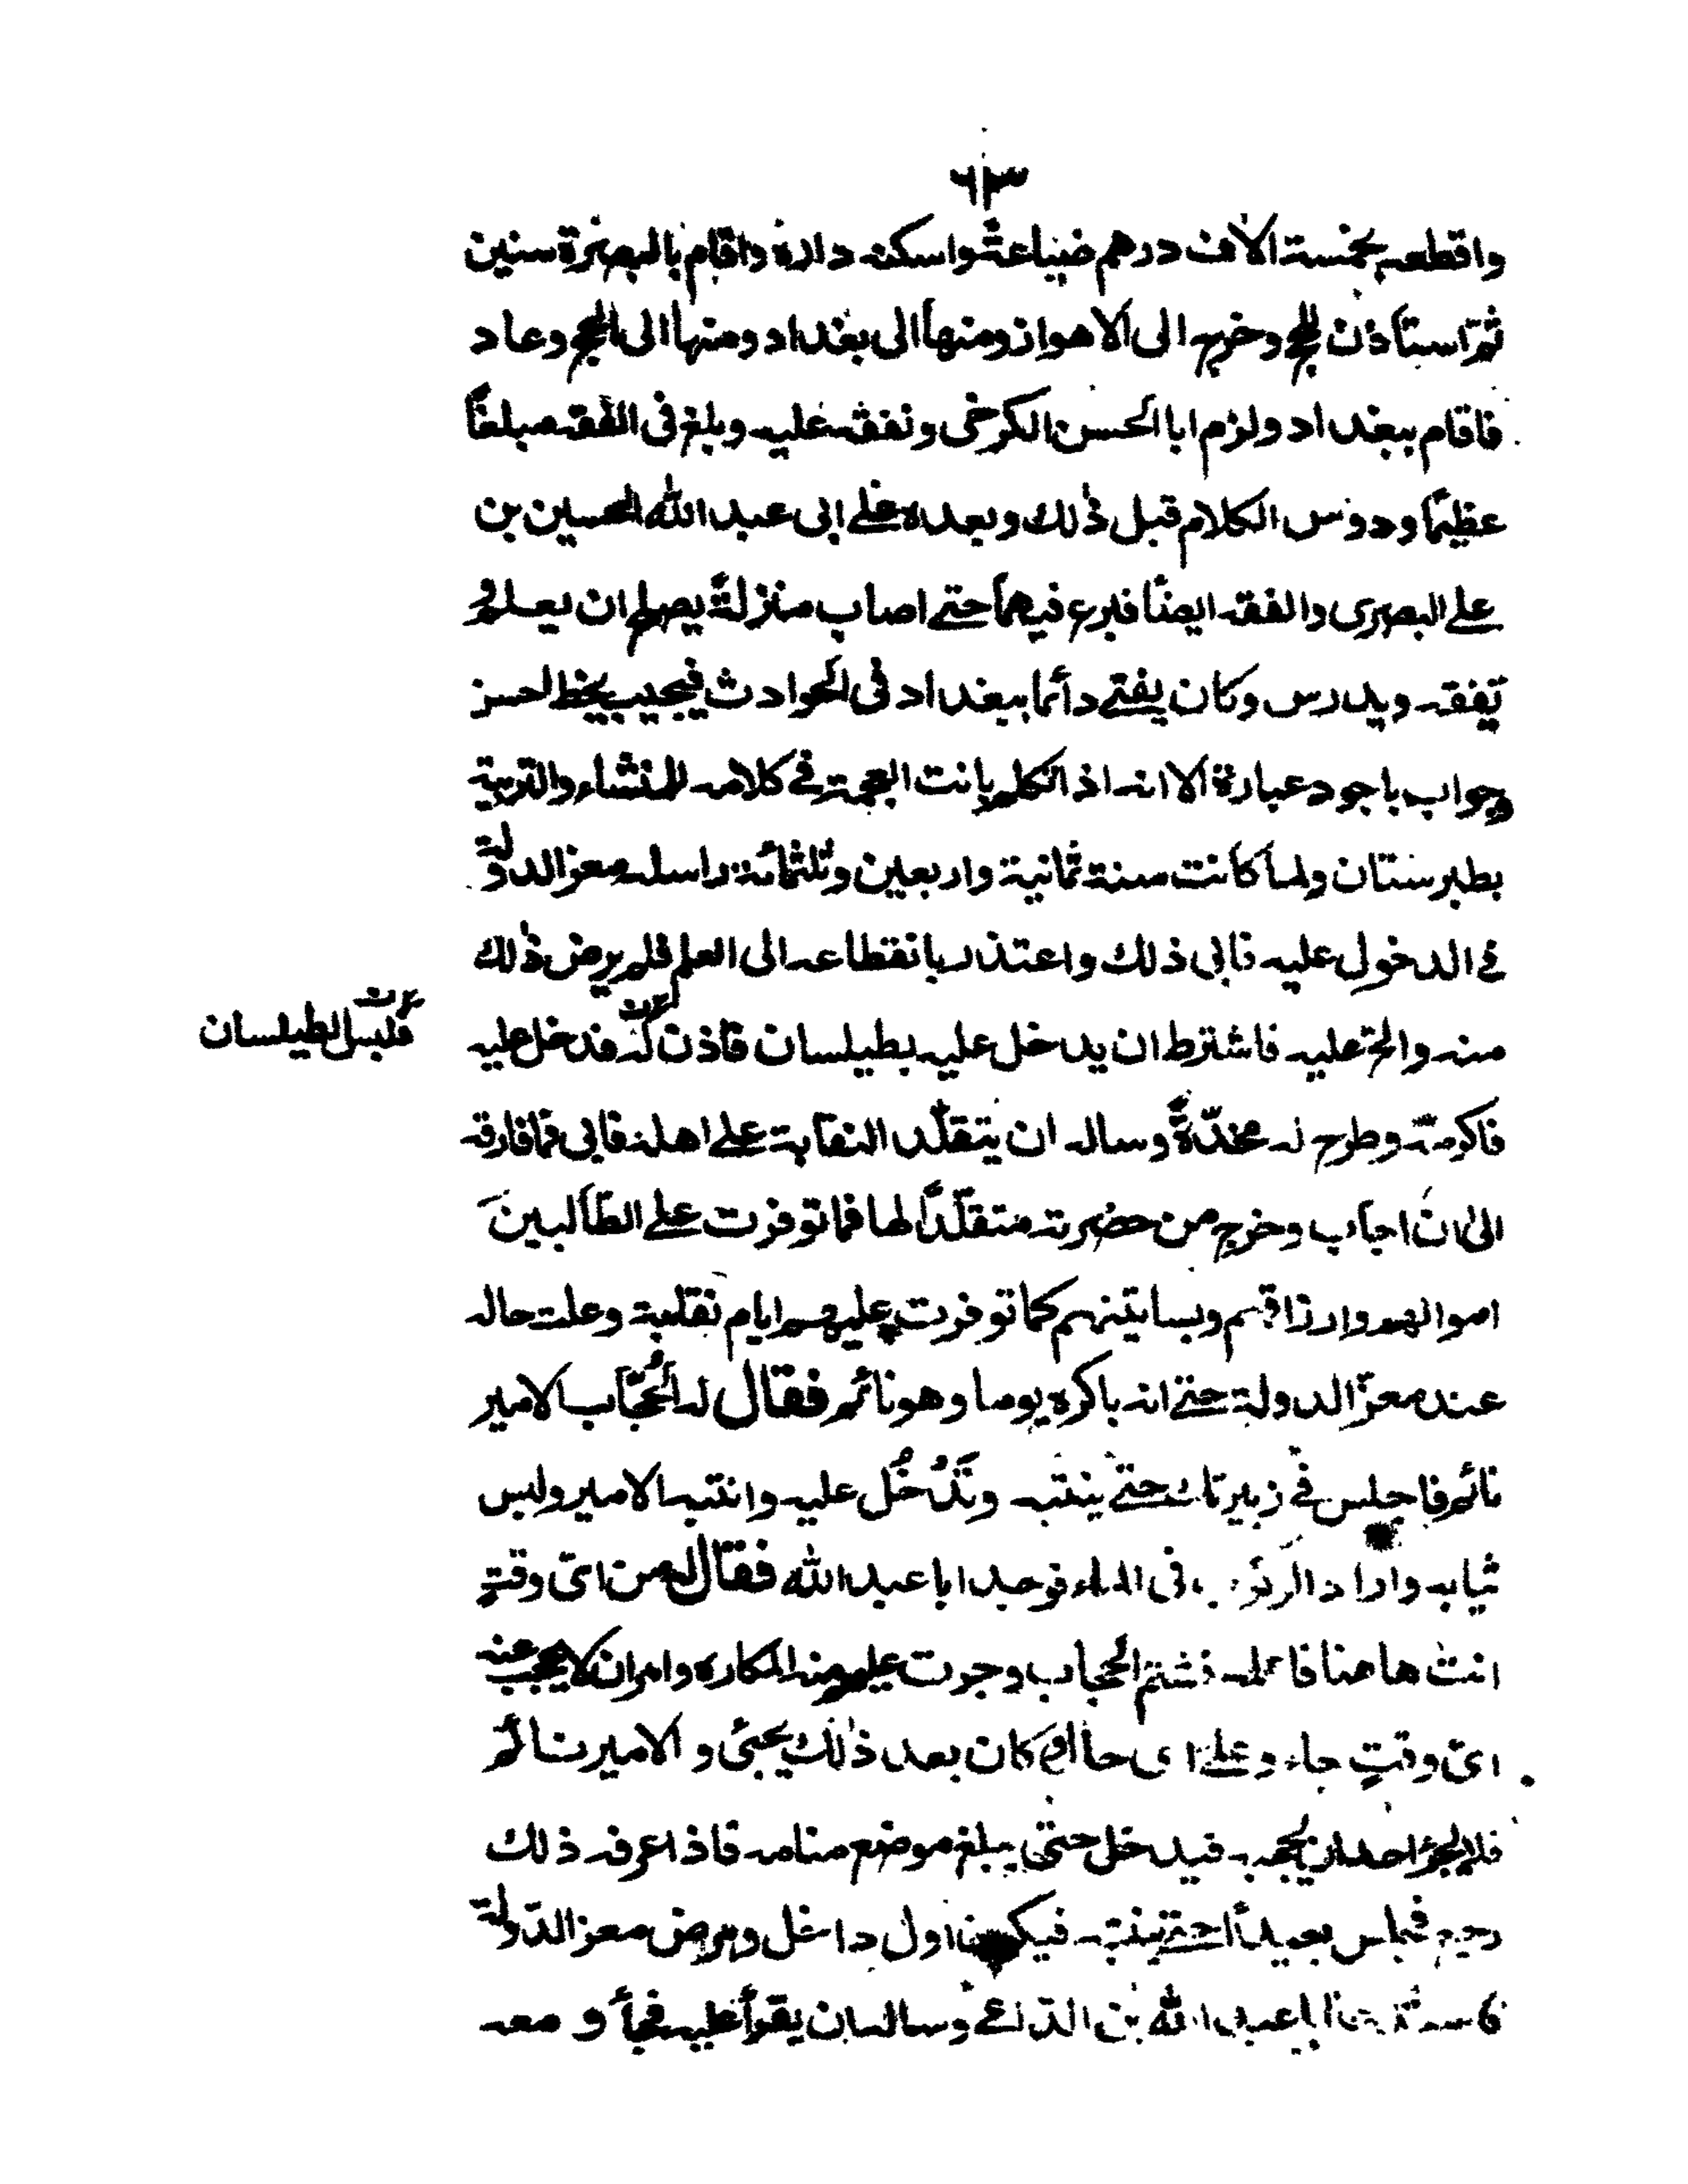 ٦١٣
واقطعه بخمسة الاف درهم ضياعا واسكنه داره واقام بالبصرة سنين
ثم استأذن للحج وخرج الى الاهواز ومنها الى بغداد ومنها الى الحج وعاد
فاقام ببغداد ولزم ابا الحسن الكرخى وتفقه عليه وبلغ فى الفقه مبلغًا
عظيمًا ودرس الكلام قبل ذٰلك وبعده علے ابى عبد الله الحسين بن
علے البصرى والفقه ايضًا فبرع فيهما حتے اصاب منزلةً يصلح ان يعلم و
يفقه ويدرس وكان يفتے دائما ببغداد فى الحوادث فيجيب بخط احسن
وجواب باجود عبارة الا انه اذا تكلم بانت العجمة فے كلامه للمنشاء والتربية
بطبرستان ولما كانت سنة ثمانية واربعين وثلثمائة راسله معز الدولة
فے الدخول عليه فابى ذلك واعتذر بانقطاعه الى العلم فلم يرض ذٰلك
منه والح عليه فاشترط ان يدخل عليه بطيلسان فاذن له فدخل عليه
فلبس الطيلسان
فاكرمه وطرح له مخدّةً وساله ان يتقلّد النقابة علے اهله فابى فما فارقه
الى ان اجاب وخرج من حضرته متقلّدًا لها فما توفرت علے الطّالبين
اموالهم وارزاقهم وبساتينهم كما توفرت عليهم ايام تقلبة وعلت حاله
عند معزّ الدولة حتے انه باكره يوما وهو نائم فقال له الحُجّاب الامير
نائم فاجلس فے زبيرتك حتے ينتبه وتَدْخُل عليه وانتبه الامير ولبس
ثيابه واراد الركوب فى الماء فوجد ابا عبد الله فقال له من اىّ وقتٍ
انت هاهنا فاعلمه فشتم الحجاب وجرت عليهم منه المكاره وامران لا يحجب عنه
اىّ وقتٍ جاء وعلے اى حال وكان بعد ذٰلك يجئى والامير نائم
فلم يجز احد ان يحجبه فيدخل حتى يبلغ موضع منامه فاذا عرف ذلك
رجع فجلس بعيدًا حتے ينتبه فيكون اول داخل ومرض معز الدولة
ابا عبد الله بن الدّاعے وساله ان يقرأ عليه فجأ و معه